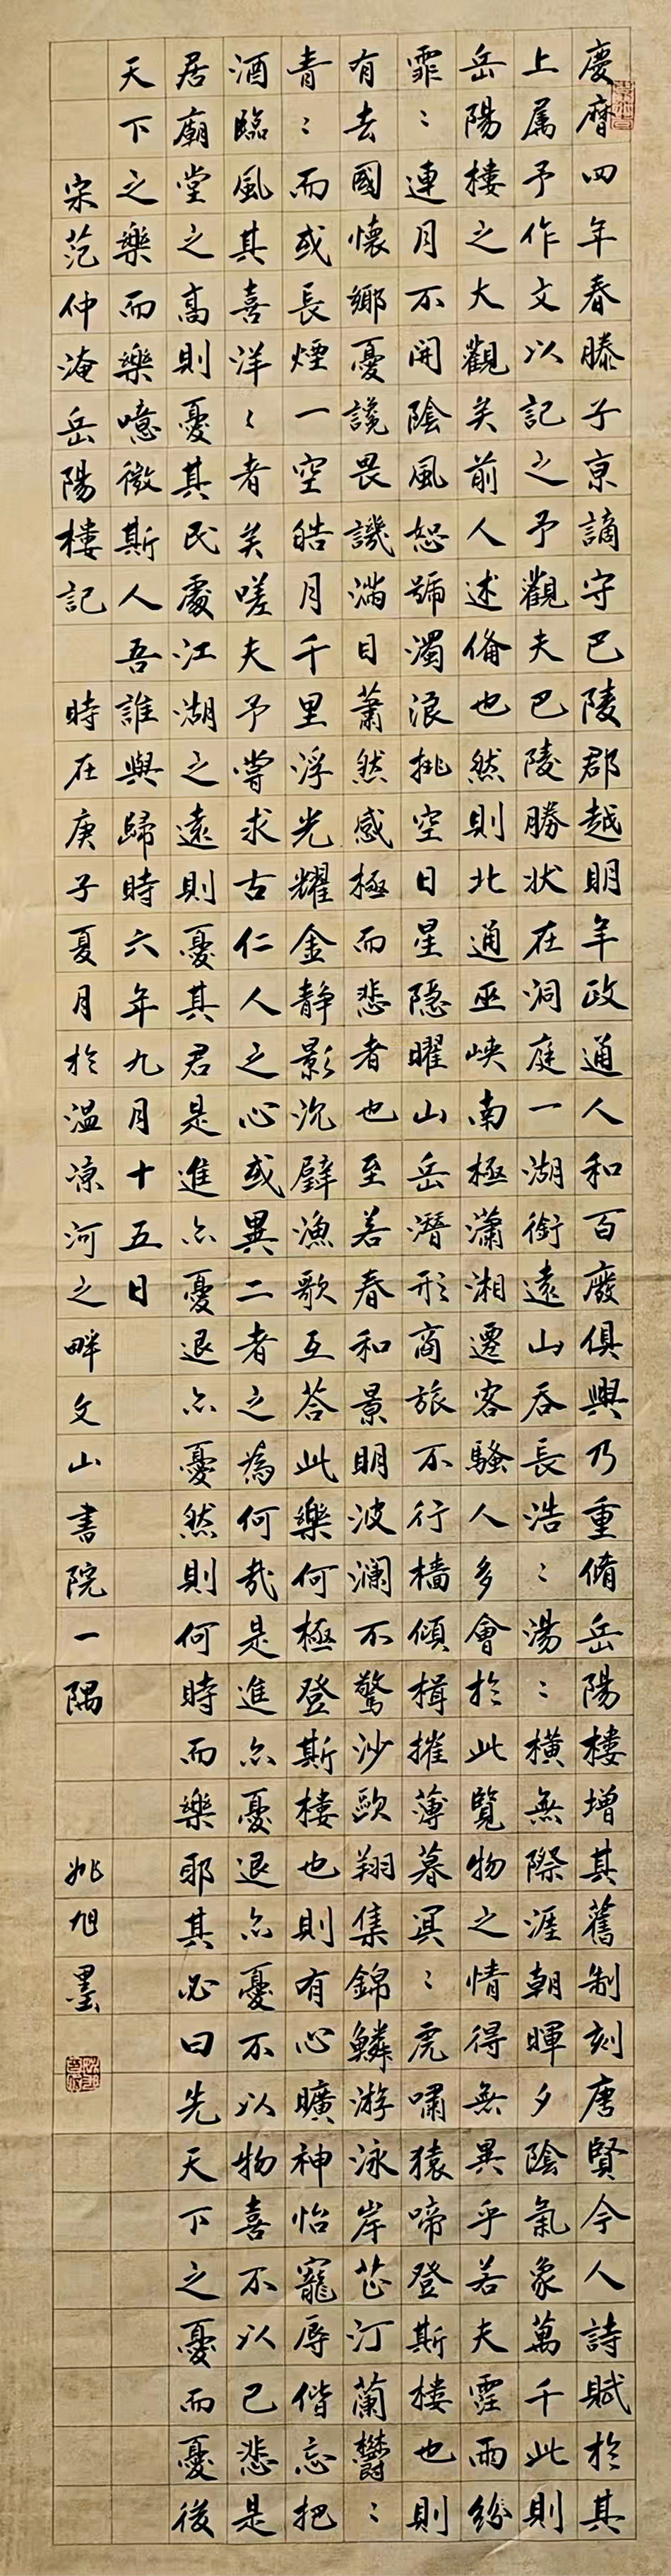 慶曆四年春滕子京謫守巴陵郡越明年政通人和百廢俱興乃重脩岳陽樓增其舊制刻唐賢今人詩賦於其
上属予作文以記之予觀夫巴陵勝状在洞庭一湖銜遠山吞長浩〻湯〻橫無際涯朝暉夕陰氣象萬千此則
岳陽樓之大觀矣前人述備也然則北通巫峽南極瀟湘遷客騷人多會於此覽物之情得無異乎若夫霪雨紛
霏〻連月不開陰風怒號濁浪排空日星隱曜山岳潛形商旅不行檣傾楫摧薄暮冥〻虎嘯猿啼登斯樓也則
有去國懷鄉憂讒畏譏滿目蕭然感極而悲者也至若春和景明波瀾不驚沙歐翔集錦鱗游泳岸芷汀蘭鬱〻
青〻而或長煙一空皓月千里浮光耀金静影沉璧漁歌互答此樂何極登斯樓也則有心曠神怡寵辱偕忘把
酒臨風其喜洋〻者矣嗟夫予嘗求古仁人之心或異二者之為何哉是進亦憂退亦憂不以物喜不以己悲是
居廟堂之高則憂其民處江湖之遠則憂其君是進亦憂退亦憂然則何時而樂耶其必曰先天下之憂而憂後
天下之樂而樂噫微斯人吾誰與歸時六年九月十五日
宋范仲淹岳陽樓記 時在庚子夏月於温凉河之畔文山書院一隅 姚旭墨